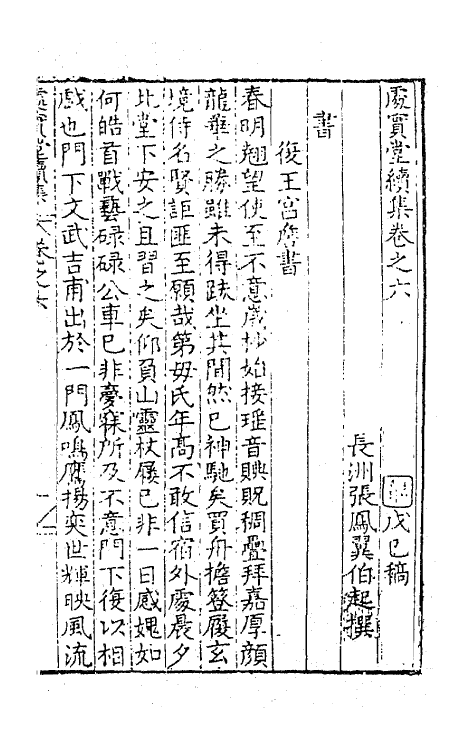 處實堂續集卷之六
戊己稿
長洲張鳳翼伯起撰
書
復王宮詹書
春明翹望使至不意歲杪始接瑤音腆貺稠疊拜嘉厚顏
龍華之勝雖未得趺坐其間然已神馳矣買舟擔簦履玄
境侍名賢詎匪至願哉第毋氏年高不敢信宿外處晨夕
此堂下安之且習之矣仰負山靈杖屨已非一日感媿如
何皓首戰藝碌碌公車已非夢寐所及不意門下復以相
戲也門下文武吉甫出於一門鳳鳴鷹揚奕世輝映風流
處實堂續集
卷之六
一